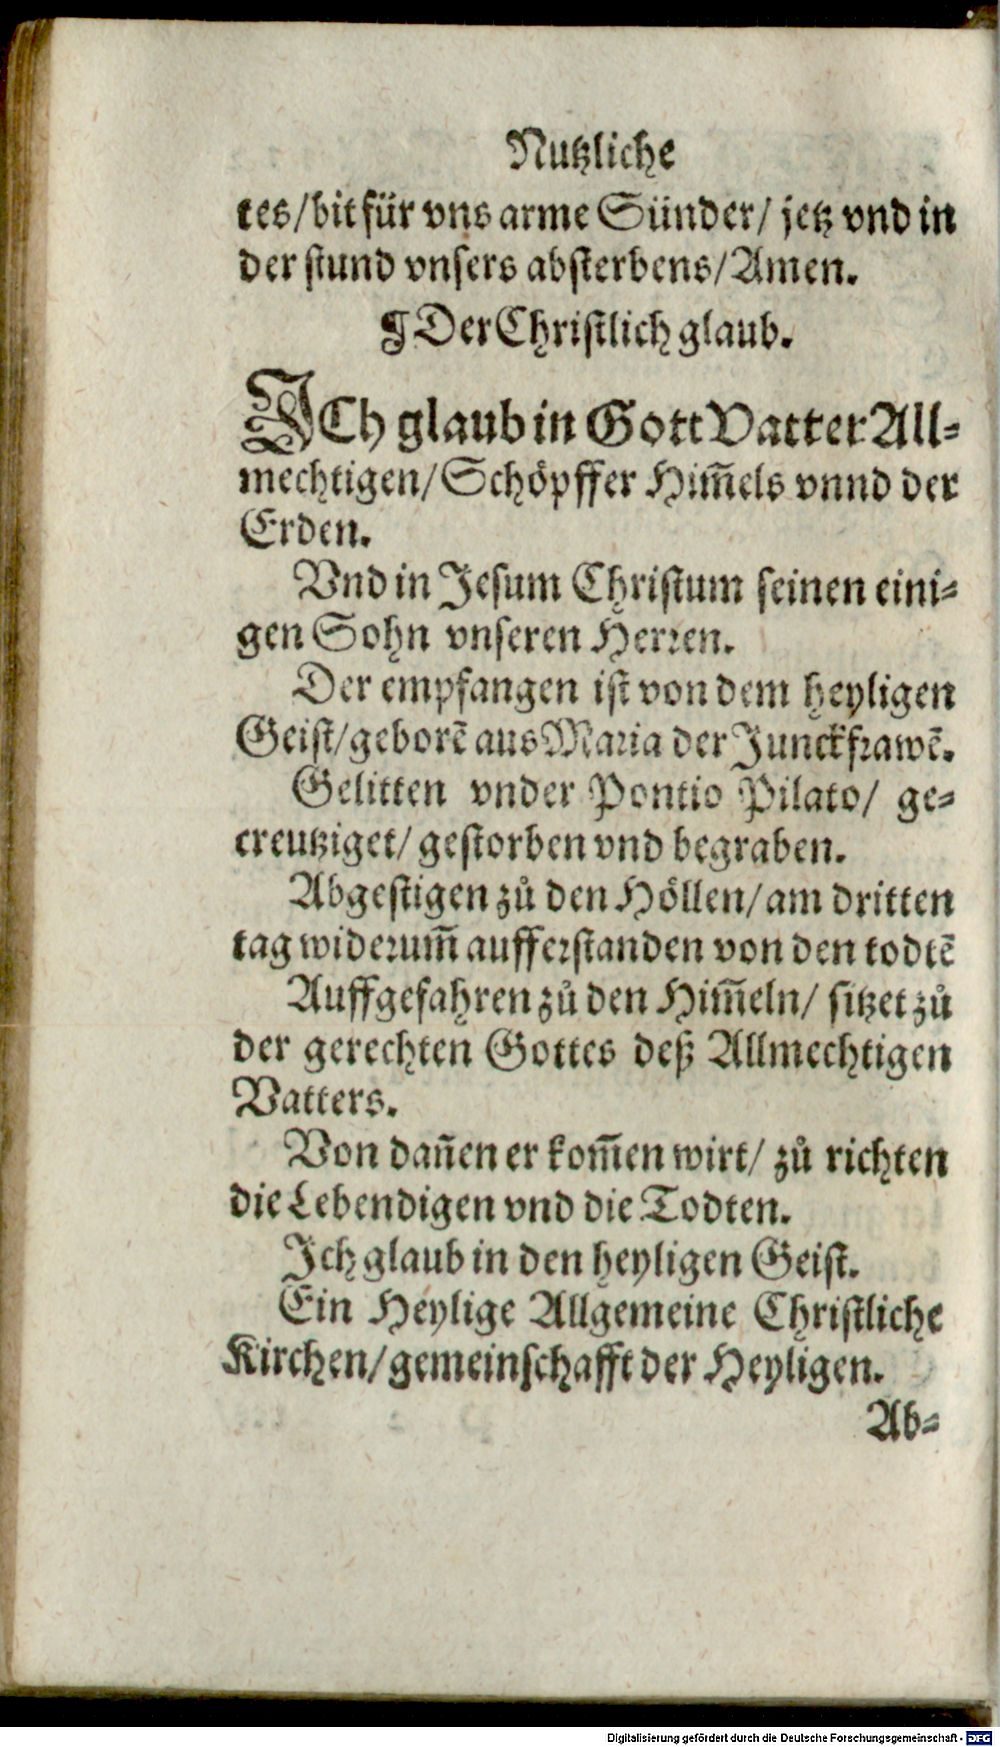 Nutzliche
tes/bit für vns arme Sünder/ jetz vnd in
der stund vnsers absterbens/Amen.
¶Der Christlich glaub.
ICh glaub in Gott Vatter All⸗
mechtigen/Schöpffer Him̅els vnnd der
Erden.
Vnd in Jesum Christum seinen eini⸗
gen Sohn vnseren Herꝛen.
Der empfangen ist von dem heyligen
Geist/geborẽ aus Maria der Junckfrawẽ.
Gelitten vnder Pontio Pilato/ ge⸗
creutziget/ gestorben vnd begraben.
Abgestigen zů den Höllen/am dritten
tag widerum̅ aufferstanden von den todtẽ
Auffgefahren zů den Him̅eln/ sitzet zů
der gerechten Gottes deß Allmechtigen
Vatters.
Von dan̅en er kom̅en wirt/ zů richten
die Lebendigen vnd die Todten.
Ich glaub in den heyligen Geist.
Ein Heylige Allgemeine Christliche
Kirchen/gemeinschafft der Heyligen.
Ab⸗
Digitalisierung gefördert durch die Deutsche Forschungsgemeinschaft - DFG